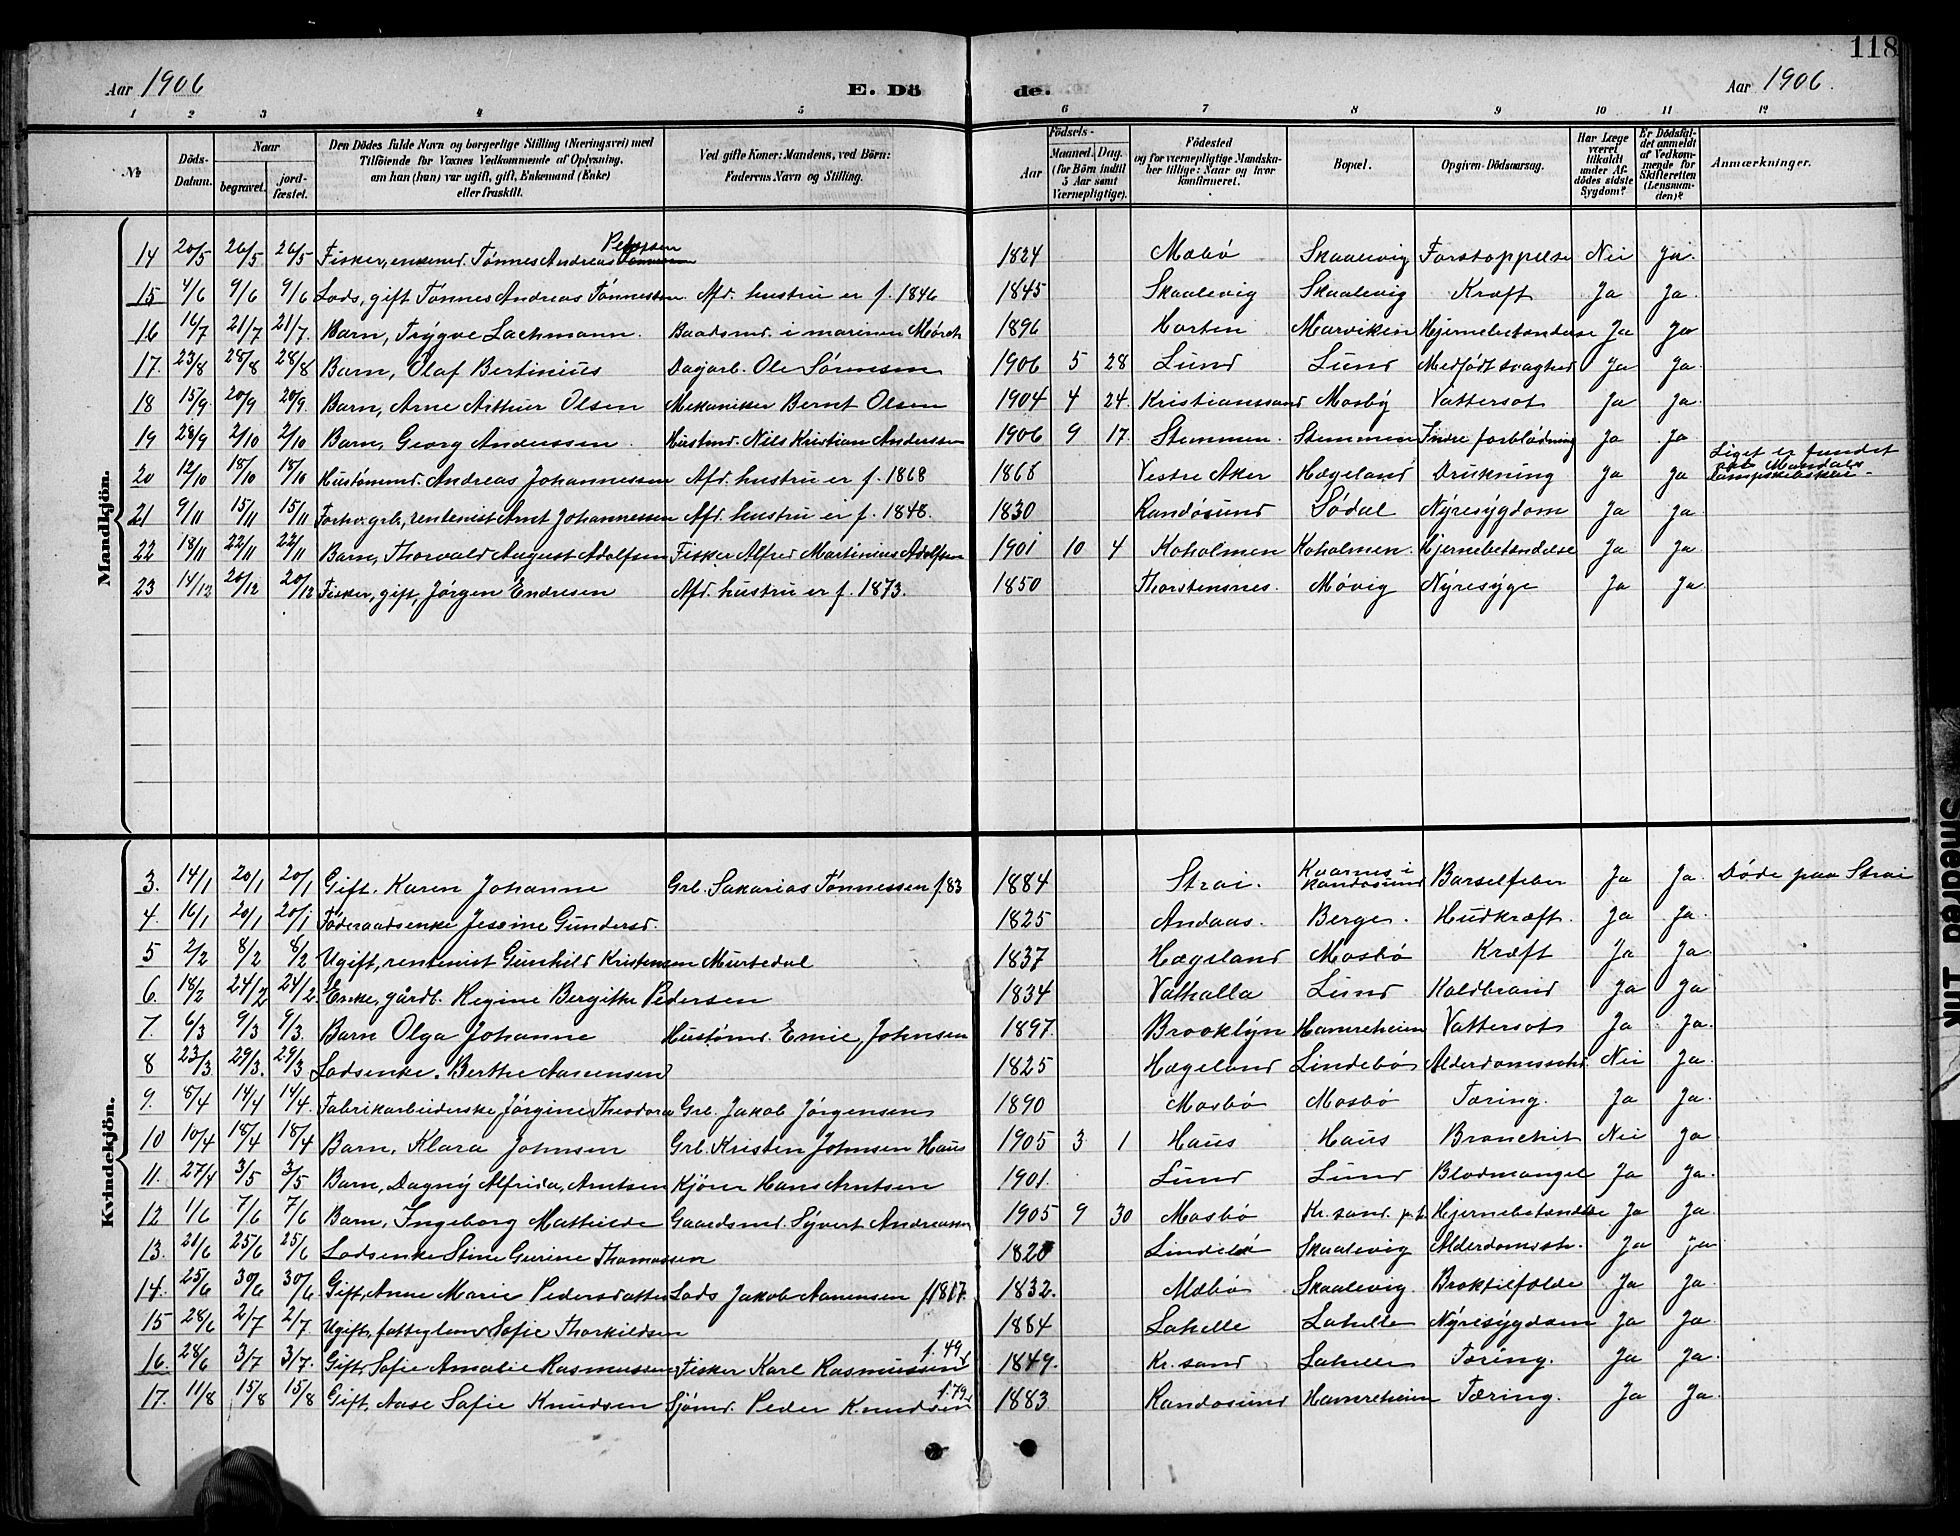 118
Aar 1906
E. Döde.
Aar 1906.
1 2 3 4 5 6 7 8 9 10 11 12
No. | Döds-Datum. | Naar begravet. | Naar jordfæstet. | Den Dödes fulde Navn og borgerlige Stilling (Næringsvei) med Tilföiende for Voxnes Vedkommende af Oplysning, om han (hun) var ugift, gift, Enkemand (Enke) eller fraskilt. | Ved gifte Koner: Mandens, ved Börn: Faderens Navn og Stilling. | Födsels- Aar | Maaned. Dag. (for Börn indtil 5 Aar samt Værnepligtige). | Födested og for værnepligtige Mandskaber tillige: Naar og hvor konfirmeret. | Bopæl. | Opgiven Dödsaarsag. | Har Læge været tilkaldt under Afdödes sidste Sygdom? | Er Dödsfaldet anmeldt af Vedkommende for Skifteretten (Lensmanden)? | Anmærkninger.
Mandkjön.
14 20/5 26/5 26/5 Fisker, enkemd. Tønnes Andreas Pedersen 1824 Mæbø Skaalevig Forstoppelse Nei Ja.
15 4/6 9/6 9/6 Lods, gift Tønnes Andreas Tønnessen. Afd. hustru er f. 1846 1845 Skaalevig Skaalevig Kræft Ja Ja.
16 16/7 21/7 21/7. Barn, Trygve Lachmann. Baadsmd. i marinen Mørch 1896 Horten Marviken Hjernebetændelse Ja Ja
17. 23/8 28/8 28/8 Barn, Olaf Bertinius Dagarb. Ole Sørensen 1906 5 28 Lund Lund Medfødt svaghed Ja Ja.
18 15/9. 20/9 20/9. Barn, Arne Arthur Olsen Mekaniker Bernt Olsen 1904 4 24. Kristianssand Mosby Vattersot Ja Ja.
19 28/9 2/10 2/10 Barn, Georg Anderssen. Husmd. Nils Kristian Anderssen 1906 9 17. Stemmen. Stemmen Indre forblødning Ja Ja
20 12/10 18/10 18/10 Hustømmd. Andreas Johannessen Afd. hustru er f. 1868 1868 Vestre Aker Hægeland Drukning Ja Ja Liget er fundet
21 9/11 15/11 15/11 Forh. grb., rentenist Arnt Johannessen Afd. hustru er f. 1848. 1830 Randøsund Sødal Nyresygdom Ja Ja.
22 18/11 22/11 22/11 Barn, Thorvald August Adolfsen Fisker Alfred Martinius Adolfsen 1901 10 4 Koholmen Koholmen. Hjernebetændelse Ja Ja.
23 14/12 20/12 20/12 Fisker, gift, Jørgen Endresen Afd. hustru er f. 1873. 1850 Thorstensnes. Møvig Nyresyge Ja Ja.
Kvindekjön.
3. 14/1 20/1 20/1 Gift. Karen Johanne Grb. Sakarias Tønnessen f. 83 1884 Strai. Kvarnes i Randøsund Barselfeber Ja Ja. Døde paa Strai
4. 16/1 20/1 20/1 Føderaadsenke Jesine Gundersd. 1825 Andaas. Berge. Hudkræft. Ja Ja.
5 2/2 8/2 8/2 Ugift, rentenist Gunhild Kristensen Murtedal 1837 Hægeland Mosbø Kræft Ja Ja.
6. 18/2 24/2 24/2. Enke, gårdb. Regine Bergitte Pedersen 1834 Valhalla Lund Koldbrand Ja Ja
7. 6/3 9/3 9/3. Barn Olga Johanne Hustømd. Emil Johnsen 1897. Brooklyn Hamreheim Vattersot Ja Ja.
8 23/3. 29/3. 29/3 Lodsenke. Berthe Aanensen 1825 Hægeland Lindebø Alderdomssvkd. Nei Ja.
9. 8/4 14/4 14/4. Fabrikarbeiderske Jørgine Theodora Grb. Jakob Jørgensen 1890 Mosbø Mosbø Tæring. Ja Ja.
10 10/4 18/4 18/4 Barn, Klara Johnsen Grb. Kristen Johnsen Haus 1905 3 1 Haus Haus Bronchit Nei Ja
11. 27/4 3/5 3/5 Barn, Dagny Alfrida, Arntsen Kjører Hans Arntsen 1901. Lund Lund Blodmangel Ja Ja.
12 1/6 7/6 7/6 Barn, Ingeborg Mathilde Gaardsmd. Syvert Andreassen 1905 9 30 Mosbø Kr. sand Hjernebetændelse Ja Ja.
13. 21/6 25/6 25/6 Lodsenke Stine Gurine Thomassen 1820 Lindebø Skaalevig Alderdomssv. Ja Ja
14. 25/6 30/6 30/6 Gift, Anne Marie Pedersdatter Lods Jakob Aanensen f 1817. 1832. Mæbø Skaalevig. Broktilfælde Ja Ja.
15 28/6 2/7 2/7. Ugift, fattiglem Sofie Thorkildsen 1884 Lahelle Lahelle Nyresygdom Ja Ja.
16. 28/6 3/7 3/7. Gift, Sofie Amalie Rasmussen Fisker Karl Rasmussen f. 49 1849. Kr. sand Lahelle Tæring. Ja Ja.
17. 11/8 15/8 15/8 Gift, Aase Sofie Knudsen Sjømd. Peder Knudsen f. 79 1883. Randøsund Hamreheim Tæring. Ja Ja.